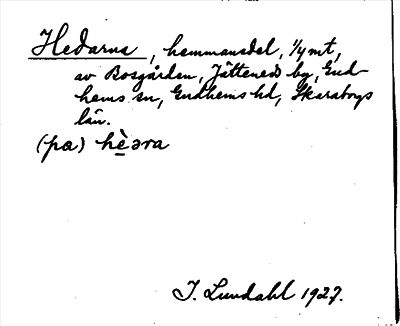 Hedarna, hemmansdel, 1/4 mt,
av Bosgården, Jättened by, Gud-
hems sn, Gudhems hd, Skaraborgs
län.
(pa) hèəra
I. Lundahl 1927.